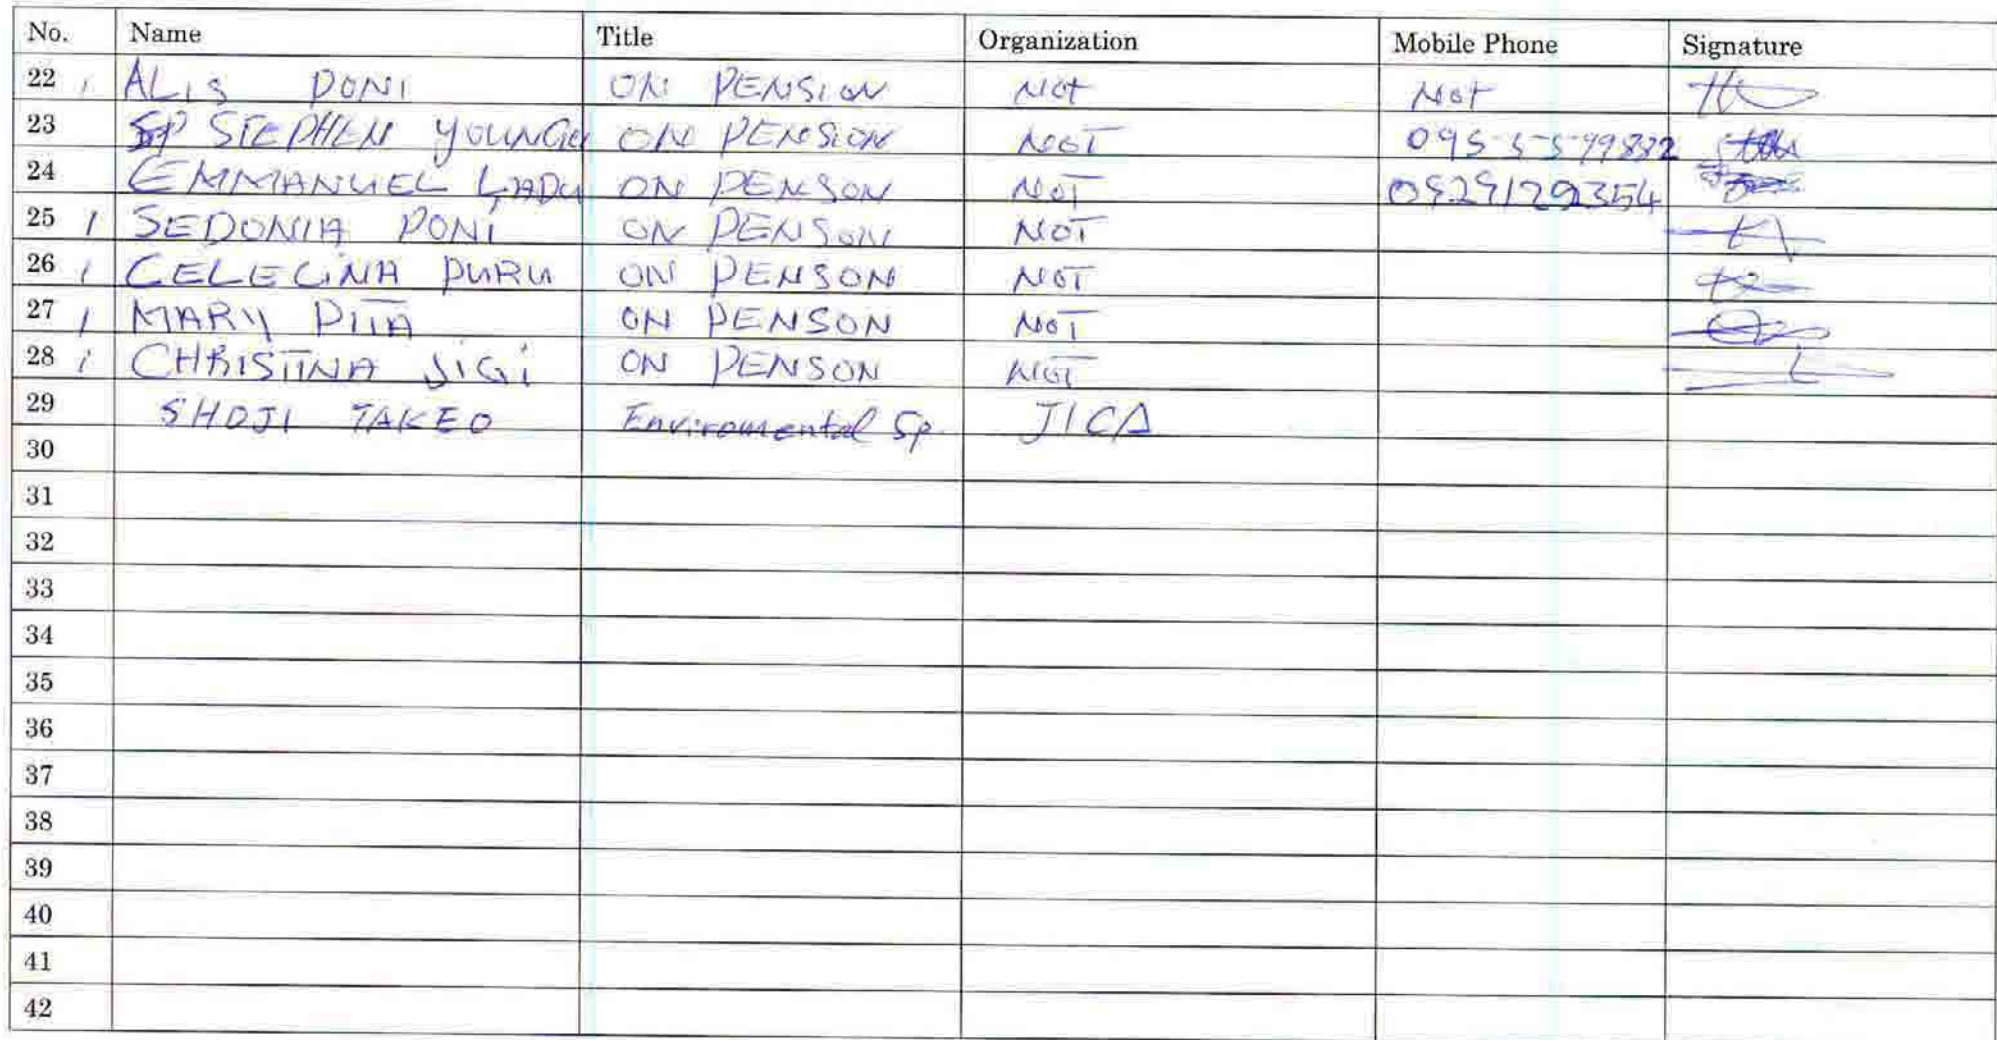 No. Name Title Organization Mobile Phone Signature
22 ALIS PONI ON PENSION Not Not
23 SP STEPHEN YOUNGU ON PENSION NOT
24 EMMANUEL LADU ON PENSON NOT 0929129354
25 SEDONIA PONI ON PENSON NOT
26 CELECINA PURU ON PENSON NOT
27 MARY PITA ON PENSON NOT
28 CHRISTINA JIGI ON PENSON NOT
29 SHOJI TAKEO Enviromental Sp. JICA
30
31
32
33
34
35
36
37
38
39
40
41
42